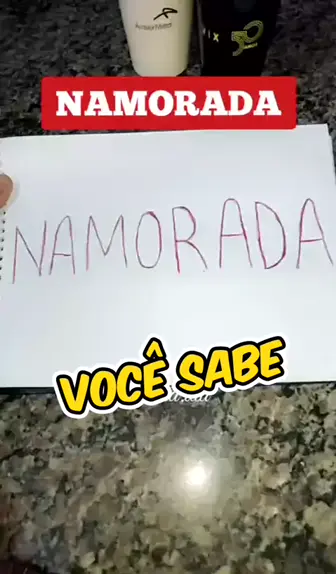 NAMORADA
NAMORADA
VOCÊ SABE